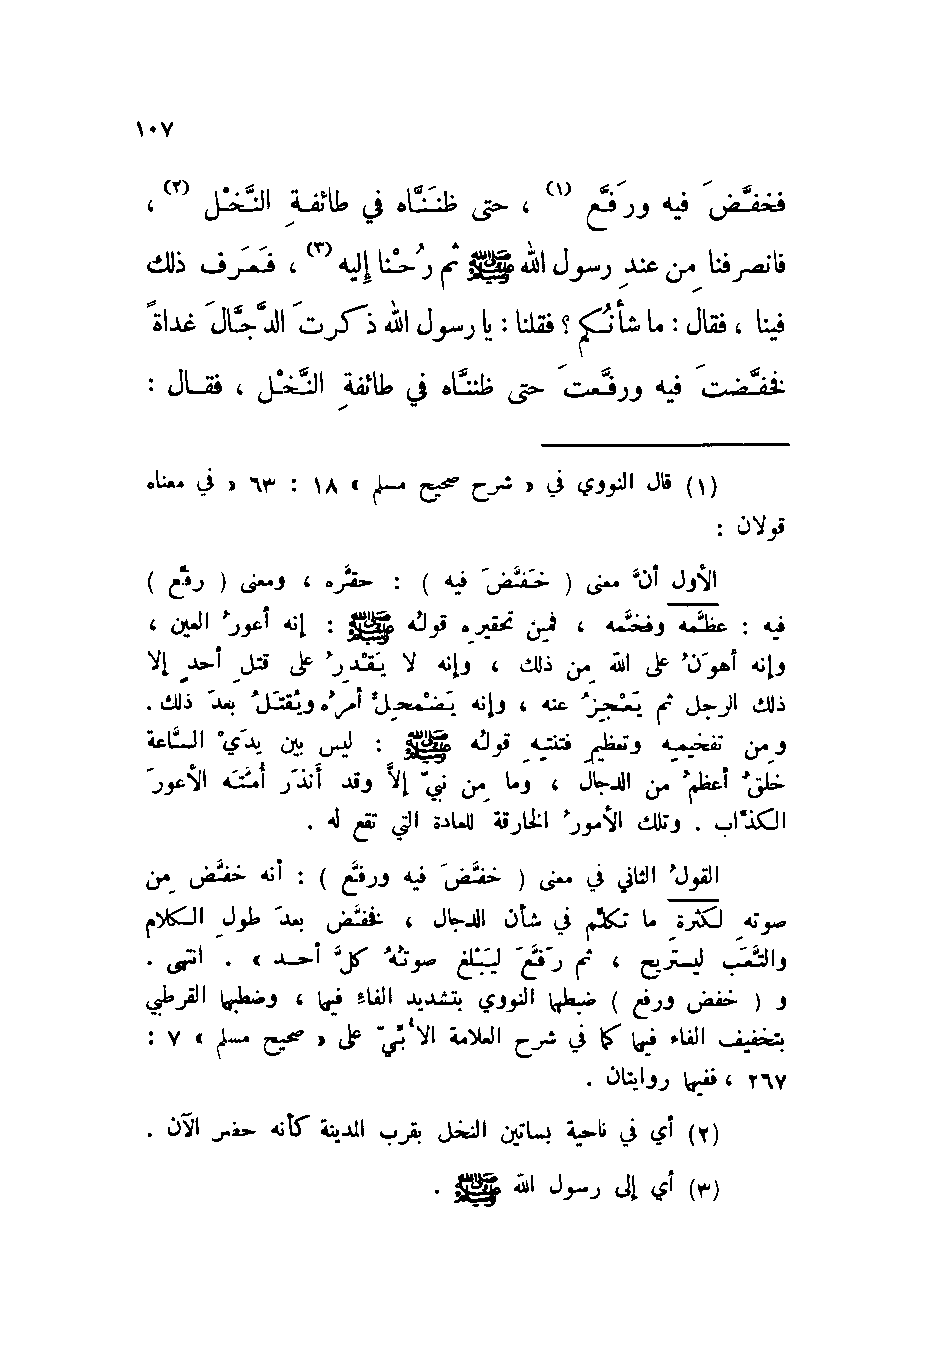 ١٠٧
فخفَّضَ فيه ورَفَّع (١) ، حتى ظنَـنَّاه في طائفةِ النَّخْل (٢) ،
فانصرفنا من عندِ رسول الله ﷺ ثم رُحْنا إليه (٣) ، فَعَرف ذلك
فينا ، فقال : ما شأنُكم ؟ فقلنا : يا رسول الله ذكرتَ الدَّجَّالَ غداةً
فخفَّضتَ فيه ورفَّعتَ حتى ظننَّاه في طائفةِ النَّخْل ، فقال :
(١) قال النووي في « شرح صحيح مسلم » ١٨ : ٦٣ « في معناه
قولان :
الأول أنَّ معنى ( خَفَّضَ فيه ) : حقَّره ، ومعنى ( رفَّع )
فيه : عظَّمه وفخَّمه ، فمِن تحقيرِه قولُه ﷺ : إنه أعورُ العين ،
وإنه أهوَنُ على الله من ذلك ، وإنه لا يَقْدِرُ على قتل أحدٍ إلا
ذلك الرجل ثم يَعْجِزُ عنه ، وإنه يَضْمحِلُّ أمرُه ويُقتَلُ بعدَ ذلك .
ومن تفخيمِه وتعظيمِ فتنتِه قولُه ﷺ : ليس بين يدَيْ السَّاعة
خلقٌ أعظمُ من الدجال ، وما من نبيّ إلاَّ وقد أنذَرَ أُمَّتَه الأعورَ
الكذّاب . وتلك الأمورُ الخارقة للعادة التي تقع له .
القولُ الثاني في معنى ( خفَّضَ فيه ورفَّع ) : أنه خفَّض من
صوتِه لكثرةِ ما تكلَّم في شأن الدجال ، فخفَّض بعدَ طولِ الكلام
والتَّعَب ليستريح ، ثم رَفَّعَ ليَبْلغ صوتُهُ كلَّ أحد » . انتهى .
و ( خفض ورفع ) ضبطها النووي بتشديد الفاء فيها ، وضبطها القرطبي
بتخفيف الفاء فيها كما في شرح العلامة الأُبِّيّ على « صحيح مسلم » ٧ :
٢٦٧ ، ففيها روايتان .
(٢) أي في ناحية بساتين النخل بقرب المدينة كأنه حضر الآن .
(٣) أي إلى رسول الله ﷺ .